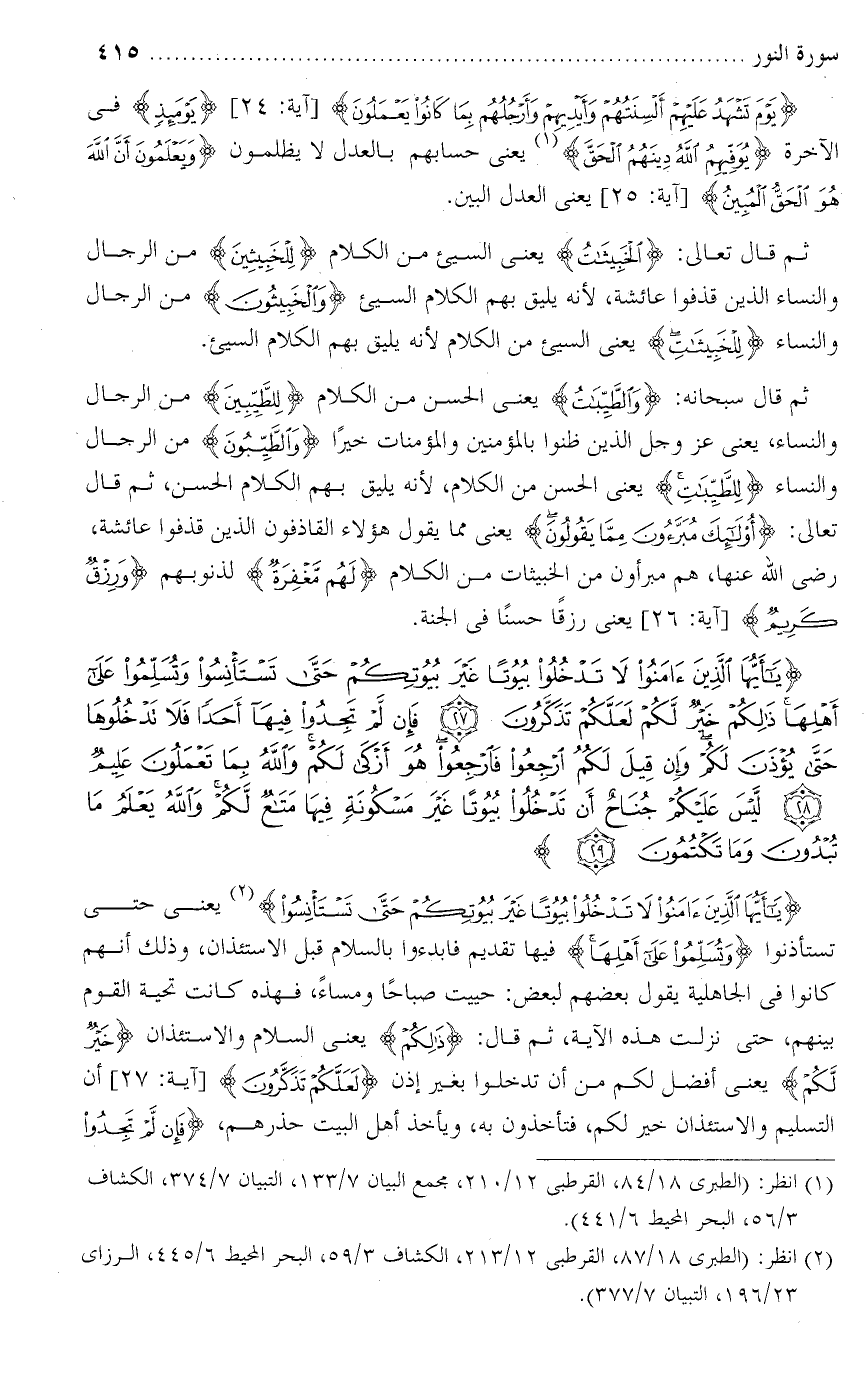 سورة النور ................................................................ ٤١٥
﴿يَوْمَ تَشْهَدُ عَلَيْهِمْ أَلْسِنَتُهُمْ وَأَيْدِيهِمْ وَأَرْجُلُهُم بِمَا كَانُوا۟ يَعْمَلُونَ﴾ [آية: ٢٤] ﴿يَوْمَئِذٍ﴾ فى
الآخرة ﴿يُوَفِّيهِمُ ٱللَّهُ دِينَهُمُ ٱلْحَقَّ﴾(١) يعنى حسابهم بالعدل لا يظلمون ﴿وَيَعْلَمُونَ أَنَّ ٱللَّهَ
هُوَ ٱلْحَقُّ ٱلْمُبِينُ﴾ [آية: ٢٥] يعنى العدل البين.
ثم قال تعالى: ﴿ٱلْخَبِيثَٰتُ﴾ يعنى السيئ من الكلام ﴿لِلْخَبِيثِينَ﴾ من الرجال
والنساء الذين قذفوا عائشة، لأنه يليق بهم الكلام السيئ ﴿وَٱلْخَبِيثُونَ﴾ من الرجال
والنساء ﴿لِلْخَبِيثَٰتِ ۖ﴾ يعنى السيئ من الكلام لأنه يليق بهم الكلام السيئ.
ثم قال سبحانه: ﴿وَٱلطَّيِّبَٰتُ﴾ يعنى الحسن من الكلام ﴿لِلطَّيِّبِينَ﴾ من الرجال
والنساء، يعنى عز وجل الذين ظنوا بالمؤمنين والمؤمنات خيرًا ﴿وَٱلطَّيِّبُونَ﴾ من الرجال
والنساء ﴿لِلطَّيِّبَٰتِ ۚ﴾ يعنى الحسن من الكلام، لأنه يليق بهم الكلام الحسن، ثم قال
تعالى: ﴿أُو۟لَٰٓئِكَ مُبَرَّءُونَ مِمَّا يَقُولُونَ ۖ﴾ يعنى مما يقول هؤلاء القاذفون الذين قذفوا عائشة،
رضى الله عنها، هم مبرأون من الخبيثات من الكلام ﴿لَهُم مَّغْفِرَةٌ﴾ لذنوبهم ﴿وَرِزْقٌ
كَرِيمٌ﴾ [آية: ٢٦] يعنى رزقًا حسنًا فى الجنة.
﴿يَٰٓأَيُّهَا ٱلَّذِينَ ءَامَنُوا۟ لَا تَدْخُلُوا۟ بُيُوتًا غَيْرَ بُيُوتِكُمْ حَتَّىٰ تَسْتَأْنِسُوا۟ وَتُسَلِّمُوا۟ عَلَىٰٓ
أَهْلِهَا ۚ ذَٰلِكُمْ خَيْرٌ لَّكُمْ لَعَلَّكُمْ تَذَكَّرُونَ ٢٧ فَإِن لَّمْ تَجِدُوا۟ فِيهَآ أَحَدًا فَلَا تَدْخُلُوهَا
حَتَّىٰ يُؤْذَنَ لَكُمْ ۖ وَإِن قِيلَ لَكُمُ ٱرْجِعُوا۟ فَٱرْجِعُوا۟ ۖ هُوَ أَزْكَىٰ لَكُمْ ۚ وَٱللَّهُ بِمَا تَعْمَلُونَ عَلِيمٌ
٢٨ لَّيْسَ عَلَيْكُمْ جُنَاحٌ أَن تَدْخُلُوا۟ بُيُوتًا غَيْرَ مَسْكُونَةٍ فِيهَا مَتَٰعٌ لَّكُمْ ۚ وَٱللَّهُ يَعْلَمُ مَا
تُبْدُونَ وَمَا تَكْتُمُونَ ٢٩ ﴾
﴿يَٰٓأَيُّهَا ٱلَّذِينَ ءَامَنُوا۟ لَا تَدْخُلُوا۟ بُيُوتًا غَيْرَ بُيُوتِكُمْ حَتَّىٰ تَسْتَأْنِسُوا۟﴾(٢) يعنى حتى
تستأذنوا ﴿وَتُسَلِّمُوا۟ عَلَىٰٓ أَهْلِهَا ۚ﴾ فيها تقديم فابدءوا بالسلام قبل الاستئذان، وذلك أنهم
كانوا فى الجاهلية يقول بعضهم لبعض: حييت صباحًا ومساءً، فهذه كانت تحية القوم
بينهم، حتى نزلت هذه الآية، ثم قال: ﴿ذَٰلِكُمْ﴾ يعنى السلام والاستئذان ﴿خَيْرٌ
لَّكُمْ﴾ يعنى أفضل لكم من أن تدخلوا بغير إذن ﴿لَعَلَّكُمْ تَذَكَّرُونَ﴾ [آية: ٢٧] أن
التسليم والاستئذان خير لكم، فتأخذون به، ويأخذ أهل البيت حذرهم، ﴿فَإِن لَّمْ تَجِدُوا۟
(١) انظر: (الطبرى ٨٤/١٨، القرطبى ٢١٠/١٢، مجمع البيان ١٣٣/٧، التبيان ٣٧٤/٧، الكشاف
٥٦/٣، البحر المحيط ٤٤١/٦).
(٢) انظر: (الطبرى ٨٧/١٨، القرطبى ٢١٣/١٢، الكشاف ٥٩/٣، البحر المحيط ٤٤٥/٦، الرزاى
١٩٦/٢٣، التبيان ٣٧٧/٧).